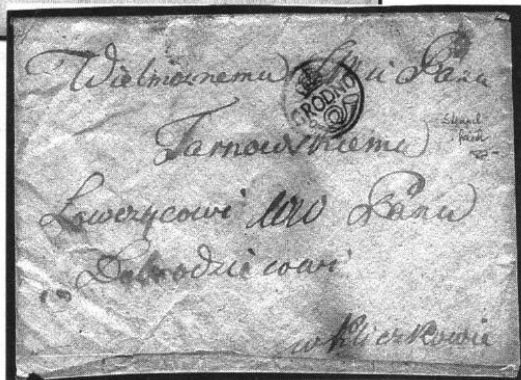 Wielmożnemu Jmci Panu
GRODNO
Tarnowskiemu
Łowczycowi Panu
Dobrodziejowi
w Kliczkowie